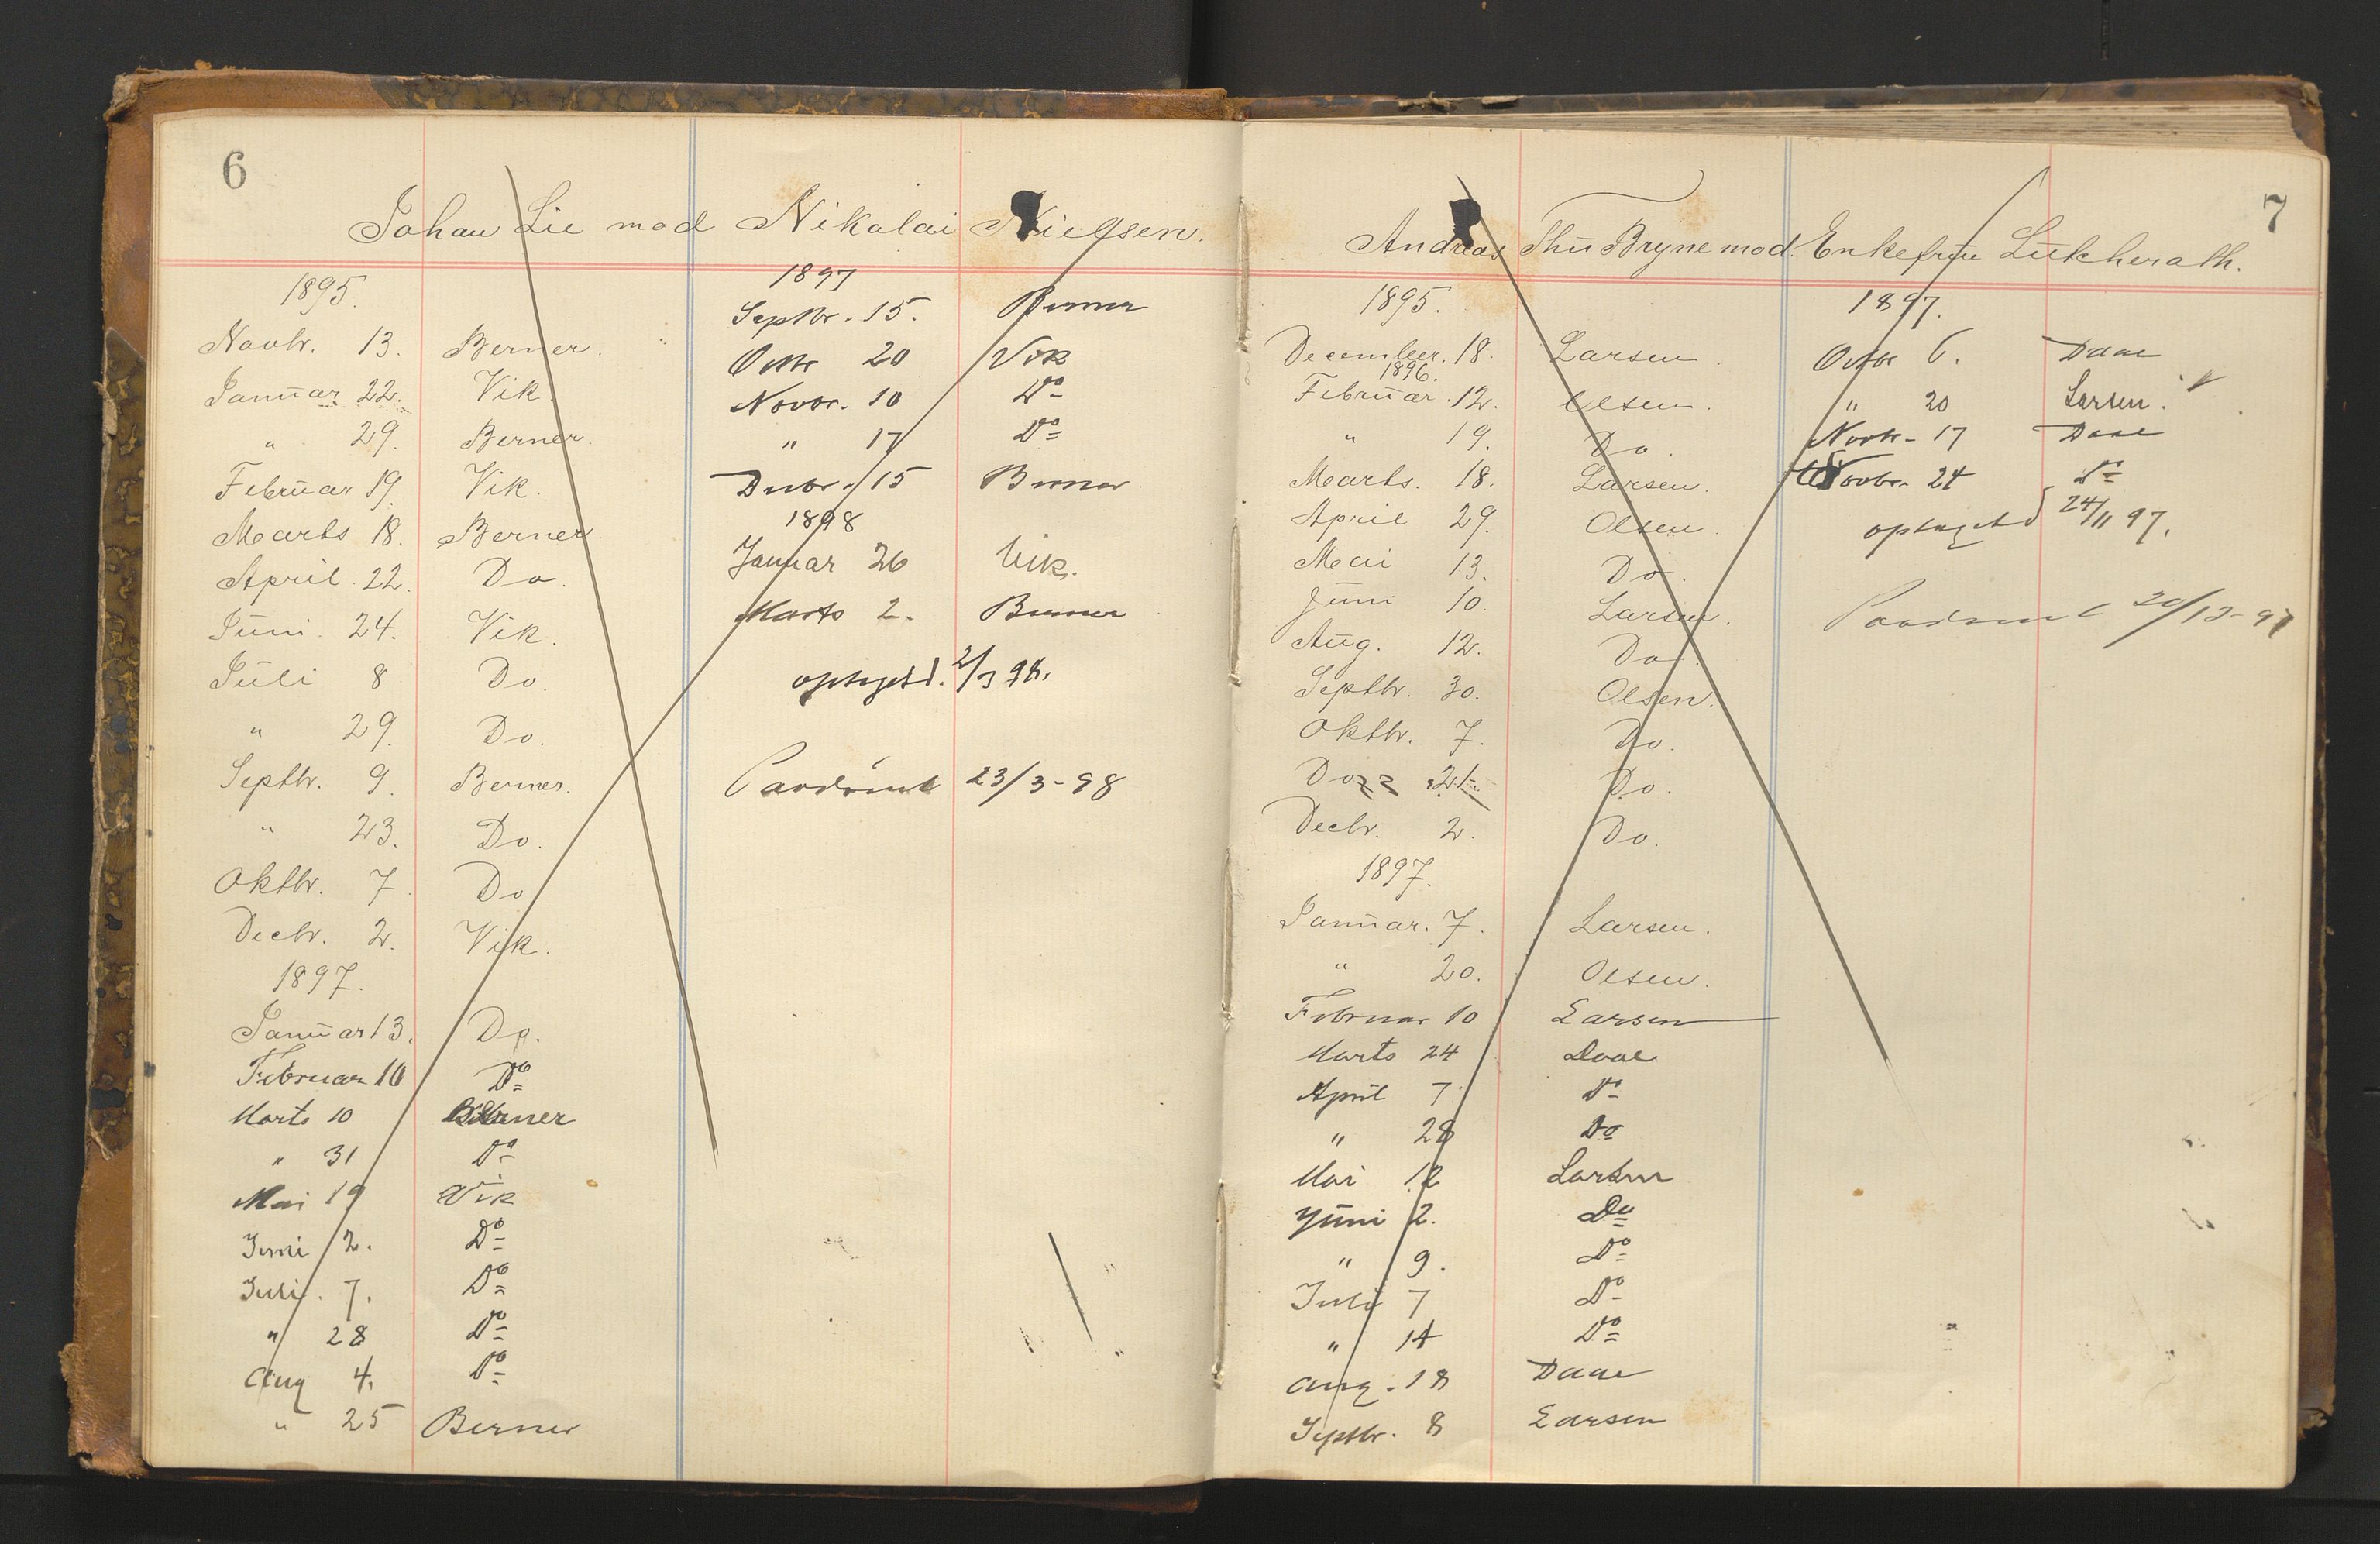 6
Johan Lie mod Nikolai Nielsen.
1895.
Novbr. 13. Berner.
Januar 22. Vik.
" 29. Berner.
Februar 19. Vik.
Marts 18. Berner
April 22. Do.
Juni 24. Vik.
Juli 8 Do.
" 29. Do.
Septbr. 9. Berner.
" 23. Do.
Oktbr. 7. Do
Decbr. 2. Vik.
1897.
Januar 13. Do.
Februar 10 Do
Marts 10 Berner
" 31 Do
Mai 19 Vik
Juni 2. Do
Juli. 7. Do
" 28 Do
Aug 4. Do
" 25 Berner
1897
Septbr. 15. Berner
Octbr 20 Vik
Novbr. 10 Do
" 17 Do
Decbr. 15 Berner
1898
Januar 26 Vik.
Marts 2. Berner
optaget d. 2/3 98.
Paadømt 23/3-98
7
Andreas Thu Bryne mod. Enkefru Lütcherath.
1895.
December. 18. Larsen.
1896.
Februar. 12. Olsen.
" 19. Do.
Marts. 18. Larsen.
April 29. Olsen.
Mai 13. Do.
Juni 10. Larsen.
Aug. 12. Do.
Septbr. 30. Olsen.
Oktbr. 7. Do.
Do 21 Do.
Decbr. 2. Do.
1897.
Januar. 7. Larsen.
" 20. Olsen.
Februar 10 Larsen
Marts 24 Daae
April 7. Do
" 28 Do
Mai 12 Larsen
Juni 2. Do
" 9. Do
Juli 7 Do
" 14 Do
Aug. 18 Daae
Septbr. 8 Larsen
1897.
Octbr 6. Daae
" 20 Larsen.
Novbr. 17 Daae
Novbr. 24 Do
optaget d 24/11 97.
Paadømt 20/12-97